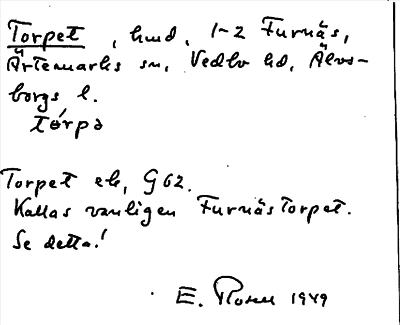 Torpet, hmd. 1-2 Furnäs,
Ärtemarks sn, Vedbo hd, Älvs-
borgs l.
tórpə
Torpet ek, G 62.
Kallas vanligen Furnästorpet.
Se detta!
E. Rosen 1949